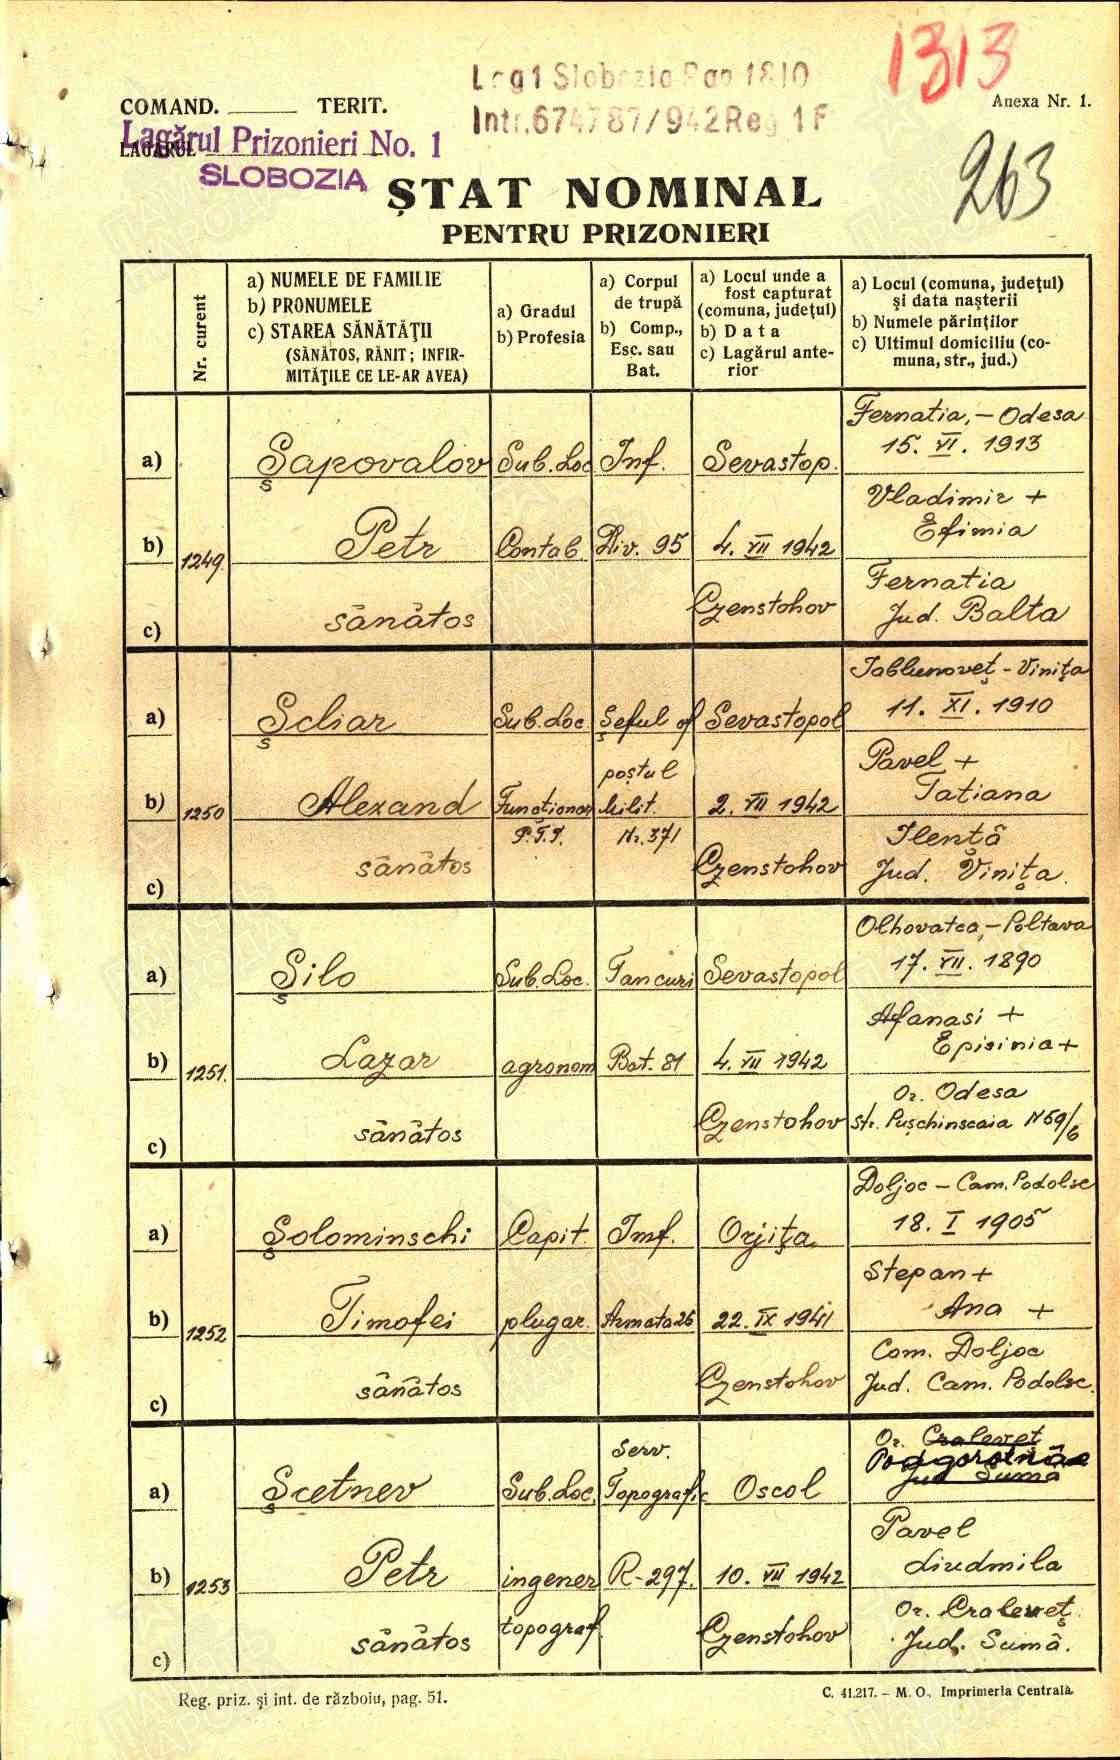 1313
Lag 1 Slobozia Rap 1810
Intr. 674787/942 Reg 1 F
Anexa Nr. 1.
COMAND. ______ TERIT.
LAGĂRUL
Lagărul Prizonieri No. 1
SLOBOZIA
263
ȘTAT NOMINAL
PENTRU PRIZONIERI
Nr. curent
a) NUMELE DE FAMILIE
b) PRONUMELE
c) STAREA SĂNĂTĂŢII
(SĂNĂTOS, RĂNIT; INFIR-
MITĂŢILE CE LE-AR AVEA)
a) Gradul
b) Profesia
a) Corpul
de trupă
b) Comp.,
Esc. sau
Bat.
a) Locul unde a
fost capturat
(comuna, judeţul)
b) Data
c) Lagărul ante-
rior
a) Locul (comuna, judeţul)
şi data naşterii
b) Numele părinţilor
c) Ultimul domiciliu (co-
muna, str., jud.)
Fernatia, – Odesa
a) Șapovalov Sub. Loc Inf. Sevastop. 15. VI. 1913
Vladimir +
Efimia
b) 1249 Petr Contab Div. 95 4. VII 1942
Fernatia
c) sănătos Czenstohov Jud. Balta
Iablunoveț – Vinița
a) Șcliar Sub. Loc Șeful of Sevastopol 11. XI. 1910
Pavel +
poștul Tatiana
b) 1250 Alexand Funcționar Milit. 2. VII 1942
P.T.T. Nr. 371 Ilențâ
c) sănâtos Czenstohov Jud. Vinița.
Olhovatca, – Poltava
a) Șilo Sub. Loc. Tancuri Sevastopol 17. VII. 1890
Afanasi +
Episinia +
b) 1251. Lazar agronom Bat. 81 4. VII 1942
Or. Odesa
c) sânâtos Czenstohov str. Pușchinscaia N 59/6
Doljoc – Cam. Podolsc
a) Șolominschi Capit. Inf. Orjița 18. I 1905
Stepan +
b) 1252 Timofei plugar. Armata 26 22. IX 1941 Ana +
Com. Doljoc
c) sânâtos Czenstohov Jud. Cam. Podolsc.
Serv. Or. Craleveț
Podgorotnâe
Jud Suma
a) Șcetnev Sub. Loc. Topografic Oscol
Pavel
b) 1253 Petr ingener R-297. 10. VII 1942 Liudmila
topograf. Or. Craleveț
c) sânâtos Czenstohov Jud. Sumâ.
Reg. priz. şi int. de războiu, pag. 51.
C. 41.217. – M. O., Imprimeria Centrală.